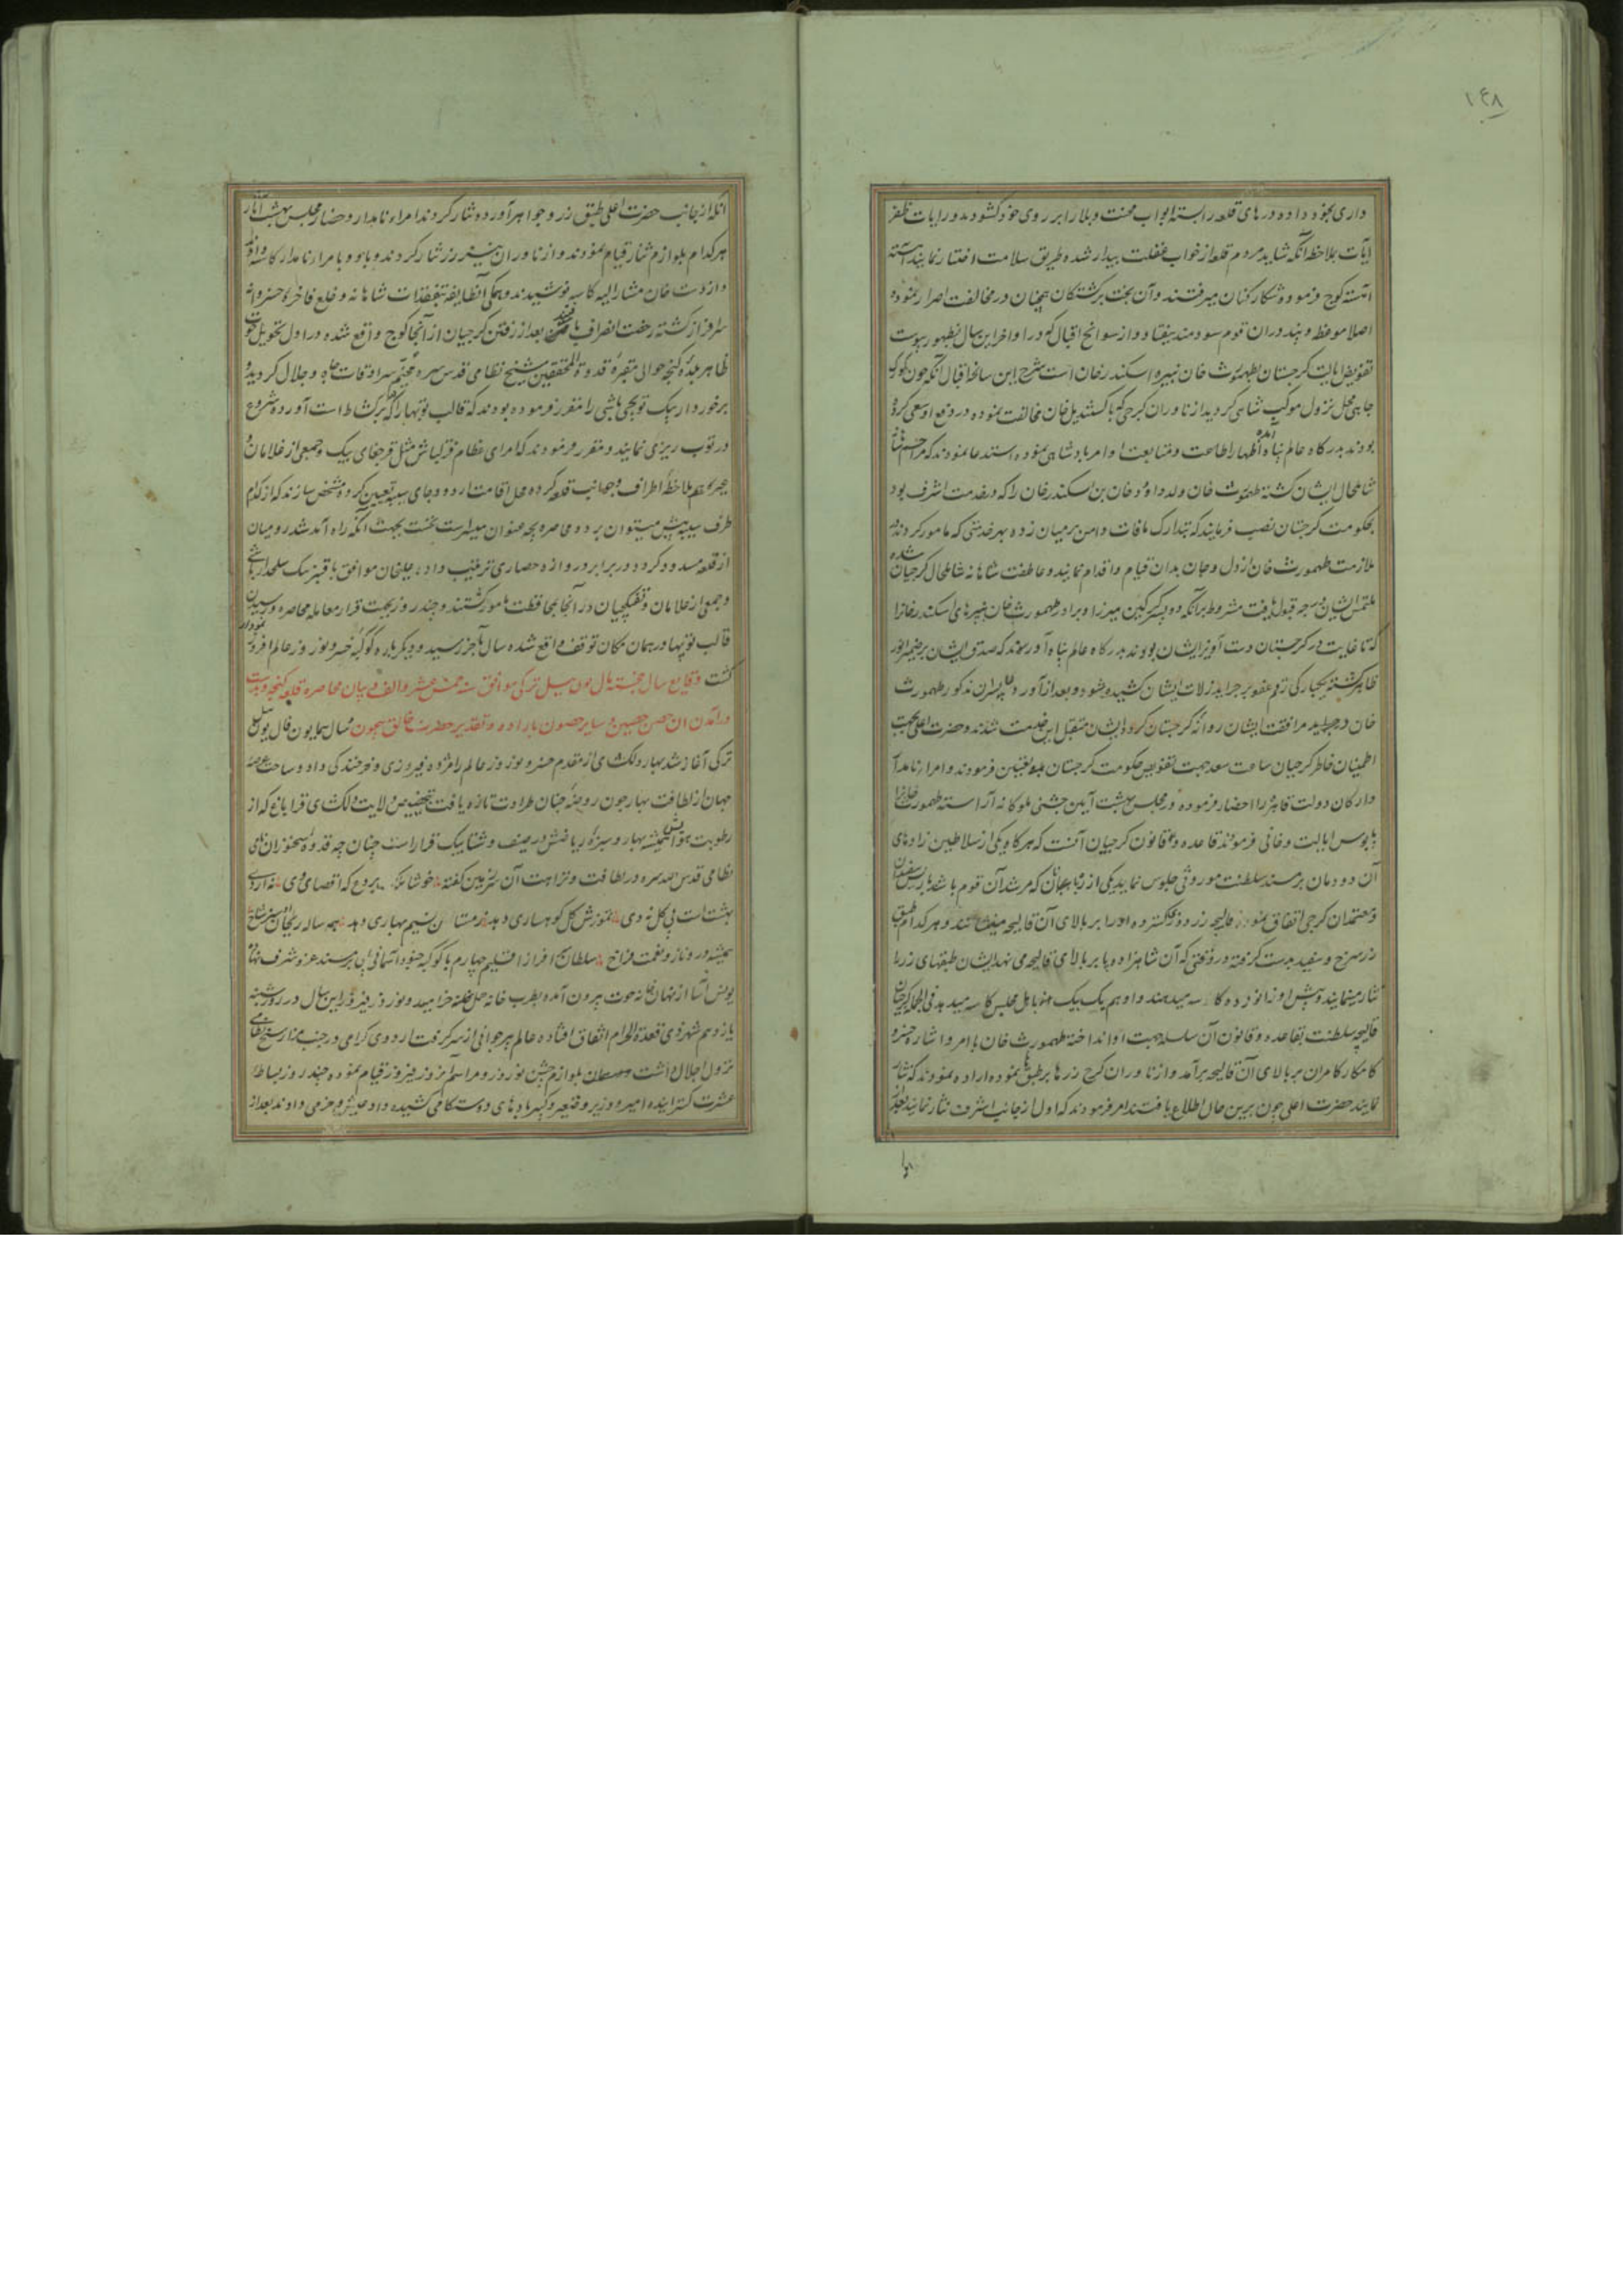 ۱۴۸
داری بخود داده درهای قلعه را بسته ابواب محنت و بلا را بر روی خود گشودند و رایات ظفر
آیات بملاحظه آنکه شاید مردم قلعه از خواب غفلت بیدار شده طریق سلامت اختیار نمایند آهسته
آهسته کوچ فرموده شکار کنان میرفتند و آن بخت برگشتگان همچنان در مخالفت اصرار نموده
اصلا موعظه و پند در آن قوم سودمند نیفتاد و از سوانح اقبال که در اواخر این سال بظهور پیوست
تفویض ایالت گرجستان بطهمورث خان نبیره اسکندر خان است شرح این سانحه اقبال آنکه چون کوری
جایی محل نزول موکب شاهی گردید از ناوران گرجی که با کستندیل خان مخالفت نموده در دفع او سعی کرده
بودند بدرگاه عالم پناه آمده اظهار اطاعت و متابعت اوامر پادشاهی نموده استدعا نمودند که مراحم شاهانه
شامل حال ایشان گشته طهمورث خان ولد داود خان بن اسکندر خان را که در خدمت اشرف بود
بحکومت گرجستان نصب فرمایند که بتدارک مافات دامن بر میان زده بهر خدمتی که مامور گردند
ملازمت طهمورث خان از دل و جان بدان قیام و اقدام نمایند و عاطفت شاهانه شامل حال گرجیان شده
ملتمس ایشان درجه قبول یافت مشروط بر آنکه دو پسر گرگین میرزا و برادر طهمورث خان نبیرهای اسکندر خانرا
که تا غایت در گرجستان دست آویز ایشان بودند بدرگاه عالم پناه آورند که صدق ایشان بر ضمیر انور
ظاهر گشته یکبارگی رقم عفو بر جراید زلات ایشان کشیده شود و بعد از آوردن پسران مذکور طهمورث
خان در مرافقت ایشان روانه گرجستان گردد ایشان متقبل این خدمت شدند و حضرت اعلی بجهت
اطمینان خاطر گرجیان ساعت سعد بجهت تفویض حکومت گرجستان تعیین فرمودند و امراء نامدار
و ارکان دولت قاهره را احضار فرموده در مجلس بهشت آیین جشنی ملوکانه آراسته طهمورث خانرا
پابوس ایالت و خانی فرمودند قاعده و قانون گرجیان آنست که هرگاه یکی از سلاطین زادهای
آن دودمان بر مسند سلطنت موروثی جلوس نماید یکی از که مرشد آن قوم باشد با ریش سفیدان
و معتمدان گرجی اتفاق نموده قالیچه زردوز گسترده او را بر بالای آن قالیچه مینشانند و هر کدام طبق
زر سرخ و سفید بدست گرفته در وقتی که آن شاهزاده پا بر بالای قالیچه می نهد ایشان طبقهای زر را
نثار مینمایند و پیش او زانو زده کاسه میدهند و او هم یک یک باهل مجلس کاسه میدهد فی الجمله گرجیان
قالیچه سلطنت بقاعده و قانون آن سلسله جهت او انداخته طهمورث خان بامر و اشاره خسرو
کامکار کامران بر بالای آن قالیچه برآمد و از ناوران گرج زرها بر طبق نموده اراده نمودند که نثار
نمایند حضرت اعلی چون برین حال اطلاع یافتند امر فرمودند که اول از جانب اشرف نثار نمایند بعد از
آنکه از جانب حضرت اعلی طبق زر و جواهر آورده نثار کردند امراء نامدار و حضار مجلس بهشت آثار
هر کدام بلوازم نثار قیام نمودند و از ناوران نیز زر نثار کردند و باو و بامراء نامدار کاسه دادند
و از دست خان مشارالیه کاسه نوشیدند و همگی آن طایفه بتفقدات شاهانه و خلع فاخره خسروانه
سرافراز گشته رخصت انصراف یافتند بعد از رفتن گرجیان از آنجا کوچ واقع شده در اول تحویل حوت
ظاهر بلده گنجه حوالی مقبره قدوة المحققین شیخ نظامی قدس سره مخیم سرادقات جاه و جلال گردید
برخوردار بیک توپچی باشی را مقرر فرموده بودند که قالب توپها را که بر کشط است آورده شروع
در توپ ریزی نمایند و مقرر فرمودند که امرای عظام قزلباش مثل قرچغای بیک و جمعی از غلامان
بملاحظه اطراف و جوانب قلعه کرده محل اقامت اردو و جای سیبه تعیین کرده مشخص سازند که از کدام
طرف سیبه پیش میتوان برد و محاصره بچه عنوان میسر است نخست بجهت آنکه راه آمد شد رومیان
از قلعه مسدود گردد در برابر دروازه حصاری ترتیب داده علیخان موافق با قنبر بیک سلحدار باشی
و جمعی از غلامان و تفنگچیان در آنجا بمحافظت مامور گشتند و چند روز بجهت قرار معامله محاصره و رسیدن
قالب توپها در همان مکان توقف واقع شده سال بآخر رسید و دیگر باره کوکبه خسرو نوروز عالم افروز نمودار
گشت وقایع سال خجسته مآل یونت ئیل ترکی موافق سنه خمس عشر و الف و بیان محاصره قلعه گنجه و بدست
درآمدن آن حصن حصین و سایر حصون باراده و تقدیر حضرت خالق بیچون سال همایون فال یونت ئیل
ترکی آغاز شد بهار دلگشای از مقدم خسرو نوروز عالم را مژده فیروزی و فرخندگی داد و ساحت عرصه
جهان از لطافت بهار چون روضه جنان طراوت تازه یافت بتخصیص ولایت دلگشای قراباغ که از
رطوبت هوایش همیشه بهار و سبزه ریاضش در صیف و شتا بیک قرار است چنانچه قدوه سخنوران
نظامی قدس الله سره در لطافت و نزاهت آن سرزمین گفته خوشا ملک بردع که اقصای وی نه اردی
بهشت است بی گل نه دی تموزش گل کوهساری دهد زمستان نسیم بهاری دهد همه ساله ریحان
همیشه در و ناز و نعمت فراخ سلطان افراز اقلیم چهارم با کوکبه جنود آسمانی بر مسند عز و شرف
یونس آسا از نهانخانه حوت برون آمده بطرب خانه حمل خرامید و نوروز فیروز این سال در روز شنبه
یازدهم شهر ذی قعدة الحرام اتفاق افتاده عالم پیر جوانی از سر گرفت اردوی گرامی در جنب مزار شیخ نظامی
نزول اجلال داشت بلوازم جشن نوروز و مراسم روز فیروز قیام نموده چند روز بساط
عشرت گسترانیده امیر و وزیر و صغیر و کبیر بادهای دوستکامی کشیده داد عیش و خرمی دادند بعد از